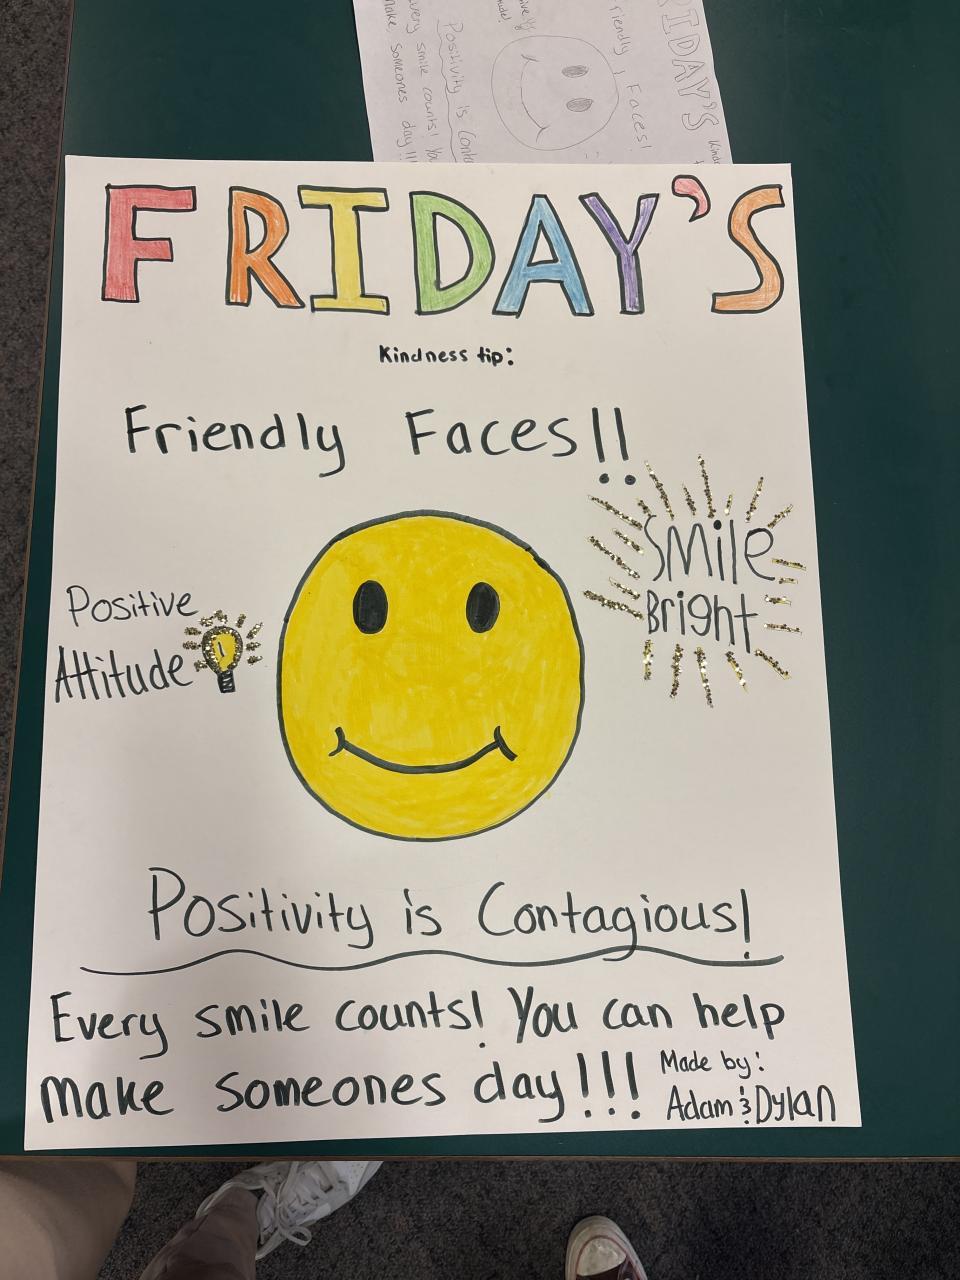 FRIDAY'S
Kindness tip:
Friendly Faces!!
Smile
Bright
Positive
Attitude
Positivity is Contagious!
Every smile counts! You can help
make someones day!!!
Made by:
Adam & Dylan
RIDAY'S
Kindn
riendly Faces!
Positivity is Conta
very smile counts! You
make, someones day!!!